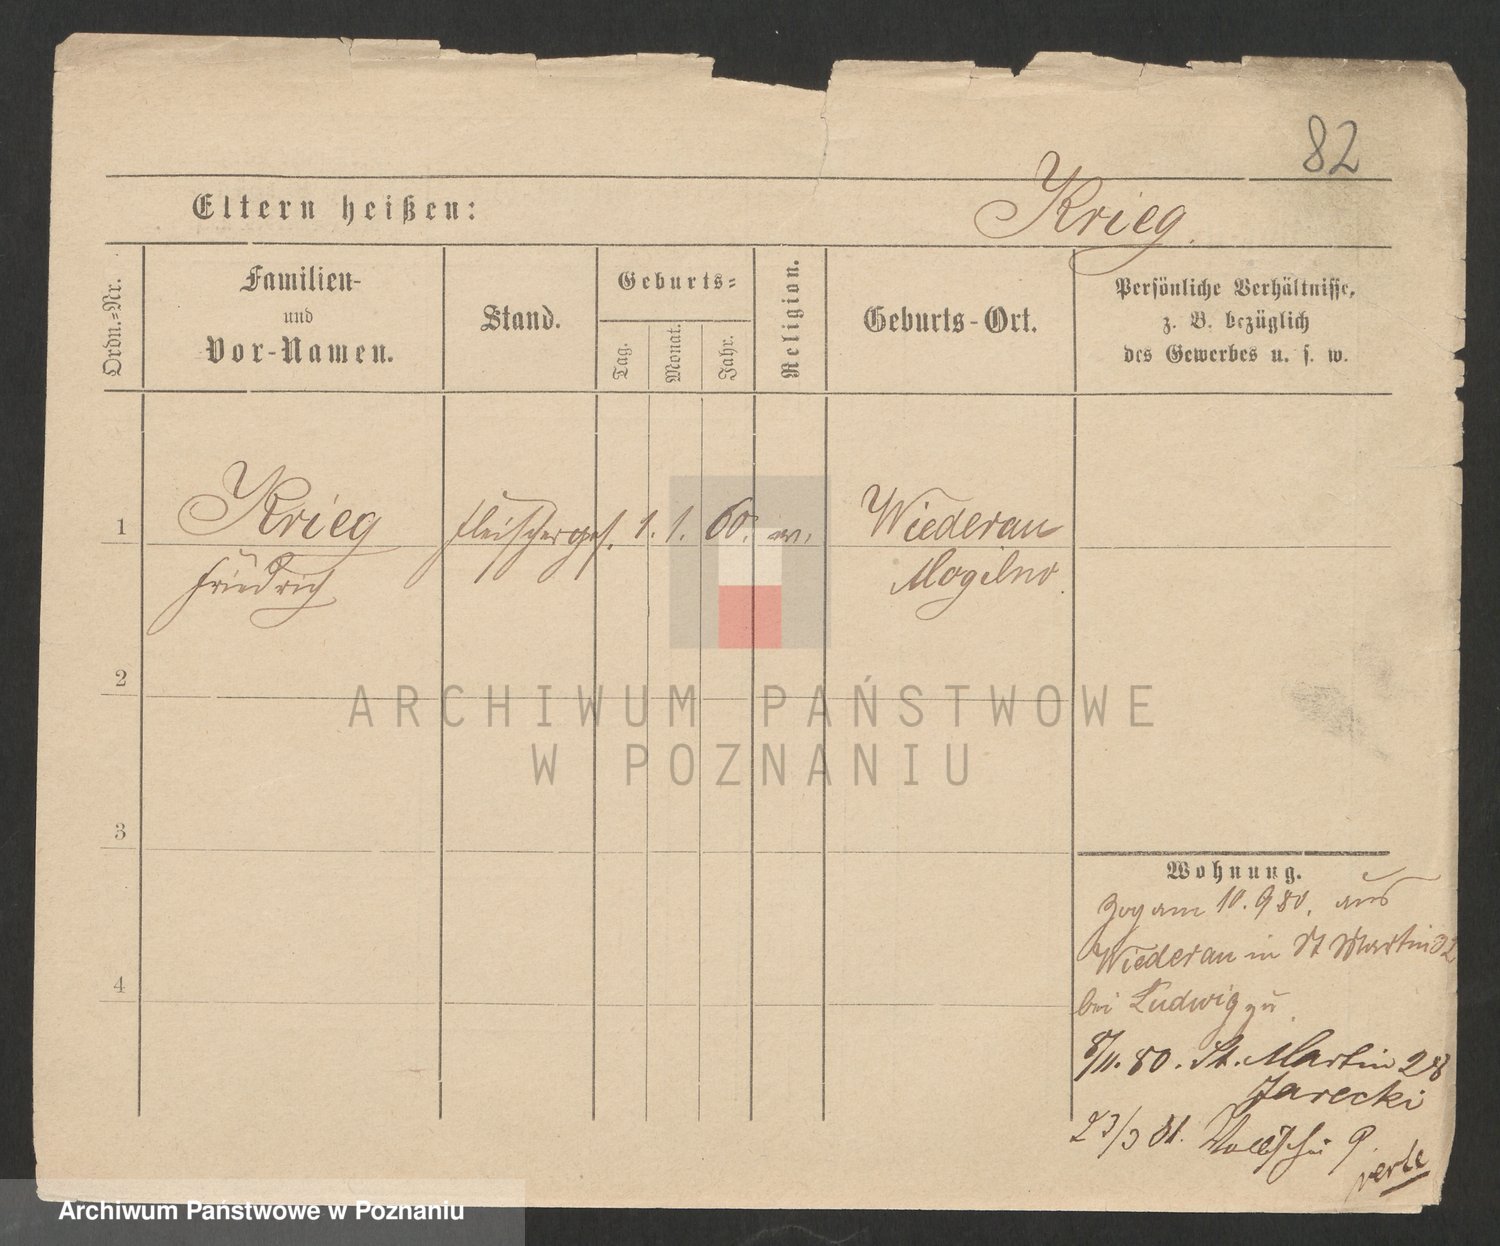 82
Eltern heißen:
Krieg.
Ordn.=Nr.
Familien-
und
Vor-Namen.
Stand.
Geburts=
Tag.
Monat.
Jahr.
Religion.
Geburts-Ort.
Persönliche Verhältnisse,
z. B. bezüglich
des Gewerbes u. s. w.
1
Krieg
Friedrich
Fleischerges.
1. 1. 60.
ev.
Wiederau
Mogilno
2
3
4
Wohnung.
Zog am 10. 9 80. aus
Wiederau in St Martin 32
bei Ludwig zu
8/11. 80. St. Martin 28
Jarecki
23/3 81. 9.
verte
ARCHIWUM PAŃSTWOWE
W POZNANIU
Archiwum Państwowe w Poznaniu